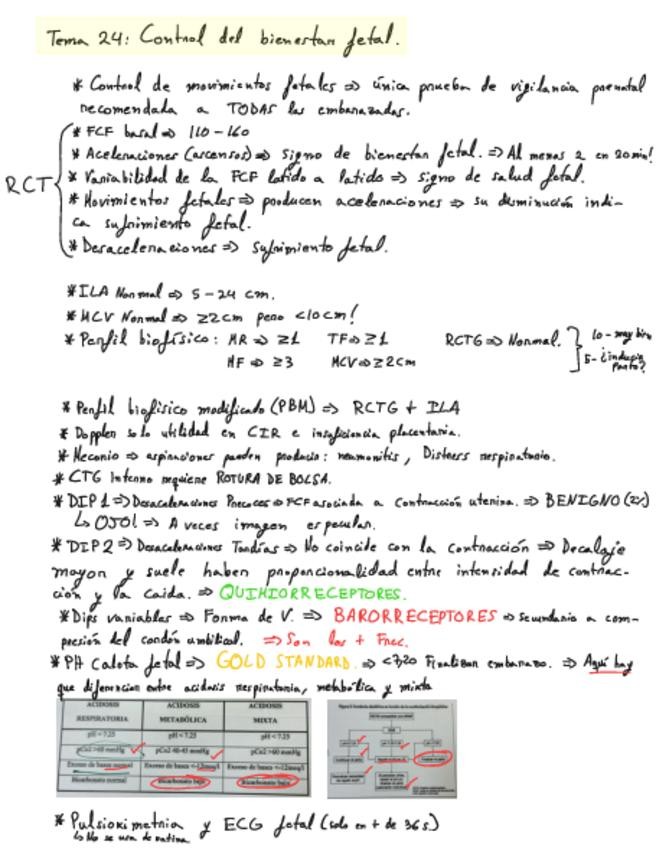 Tema 24: Control del bienestar fetal.
* Control de movimientos fetales ⇒ única prueba de vigilancia prenatal
recomendada a TODAS las embarazadas.
RCT
* FCF basal ⇒ 110-160
* Aceleraciones (ascensos) ⇒ Signo de bienestar fetal. ⇒ Al menos 2 en 20 min!
* Variabilidad de la FCF latido a latido ⇒ signo de salud fetal.
* Movimientos fetales ⇒ producen aceleraciones ⇒ su disminución indi-
ca sufrimiento fetal.
* Desaceleraciones ⇒ Sufrimiento fetal.
* ILA Normal ⇒ 5-24 cm.
* MCV Normal ⇒ ≥2cm pero <10cm!
* Perfil biofísico: MR ⇒ ≥1 TF ⇒ ≥1 RCTG ⇒ Normal. 10-muy bien
MF ⇒ ≥3 MCV ⇒ ≥2cm 5-¿inducir parto?
* Perfil biofísico modificado (PBM) ⇒ RCTG + ILA
* Doppler solo utilidad en CIR e insuficiencia placentaria.
* Meconio ⇒ aspiraciones pueden producir: neumonitis, Distress respiratorio.
* CTG Interno requiere ROTURA DE BOLSA.
* DIP 1 ⇒ Desaceleraciones Precoces ⇒ FCF asociada a contracción uterina. ⇒ BENIGNO
↳ OJO! ⇒ A veces imagen especular.
* DIP 2 ⇒ Desaceleraciones Tardías ⇒ No coincide con la contracción ⇒ Decalaje
mayor y suele haber proporcionalidad entre intensidad de contrac-
ción y la caída. ⇒ QUIMIORRECEPTORES.
* Dips variables ⇒ Forma de V. ⇒ BARORRECEPTORES ⇒ secundario a com-
presión del cordón umbilical. ⇒ Son los + Frec.
* PH Calota fetal ⇒ GOLD STANDARD. ⇒ <7,20 Finalizar embarazo. ⇒ Aquí hay
que diferenciar entre acidosis respiratoria, metabólica y mixta
ACIDOSIS RESPIRATORIA ACIDOSIS METABÓLICA ACIDOSIS MIXTA
pH < 7.25 pH < 7.25 pH < 7.25
pCo2 >60 mmHg pCo2 40-45 mmHg pCo2 >60 mmHg
Exceso de bases normal Exceso de bases <-12meq/l Exceso de bases <-12meq/l
Bicarbonato normal Bicarbonato bajo Bicarbonato bajo
* Pulsioximetria y ECG fetal (solo en + de 36 s)
↳ No se usa de rutina